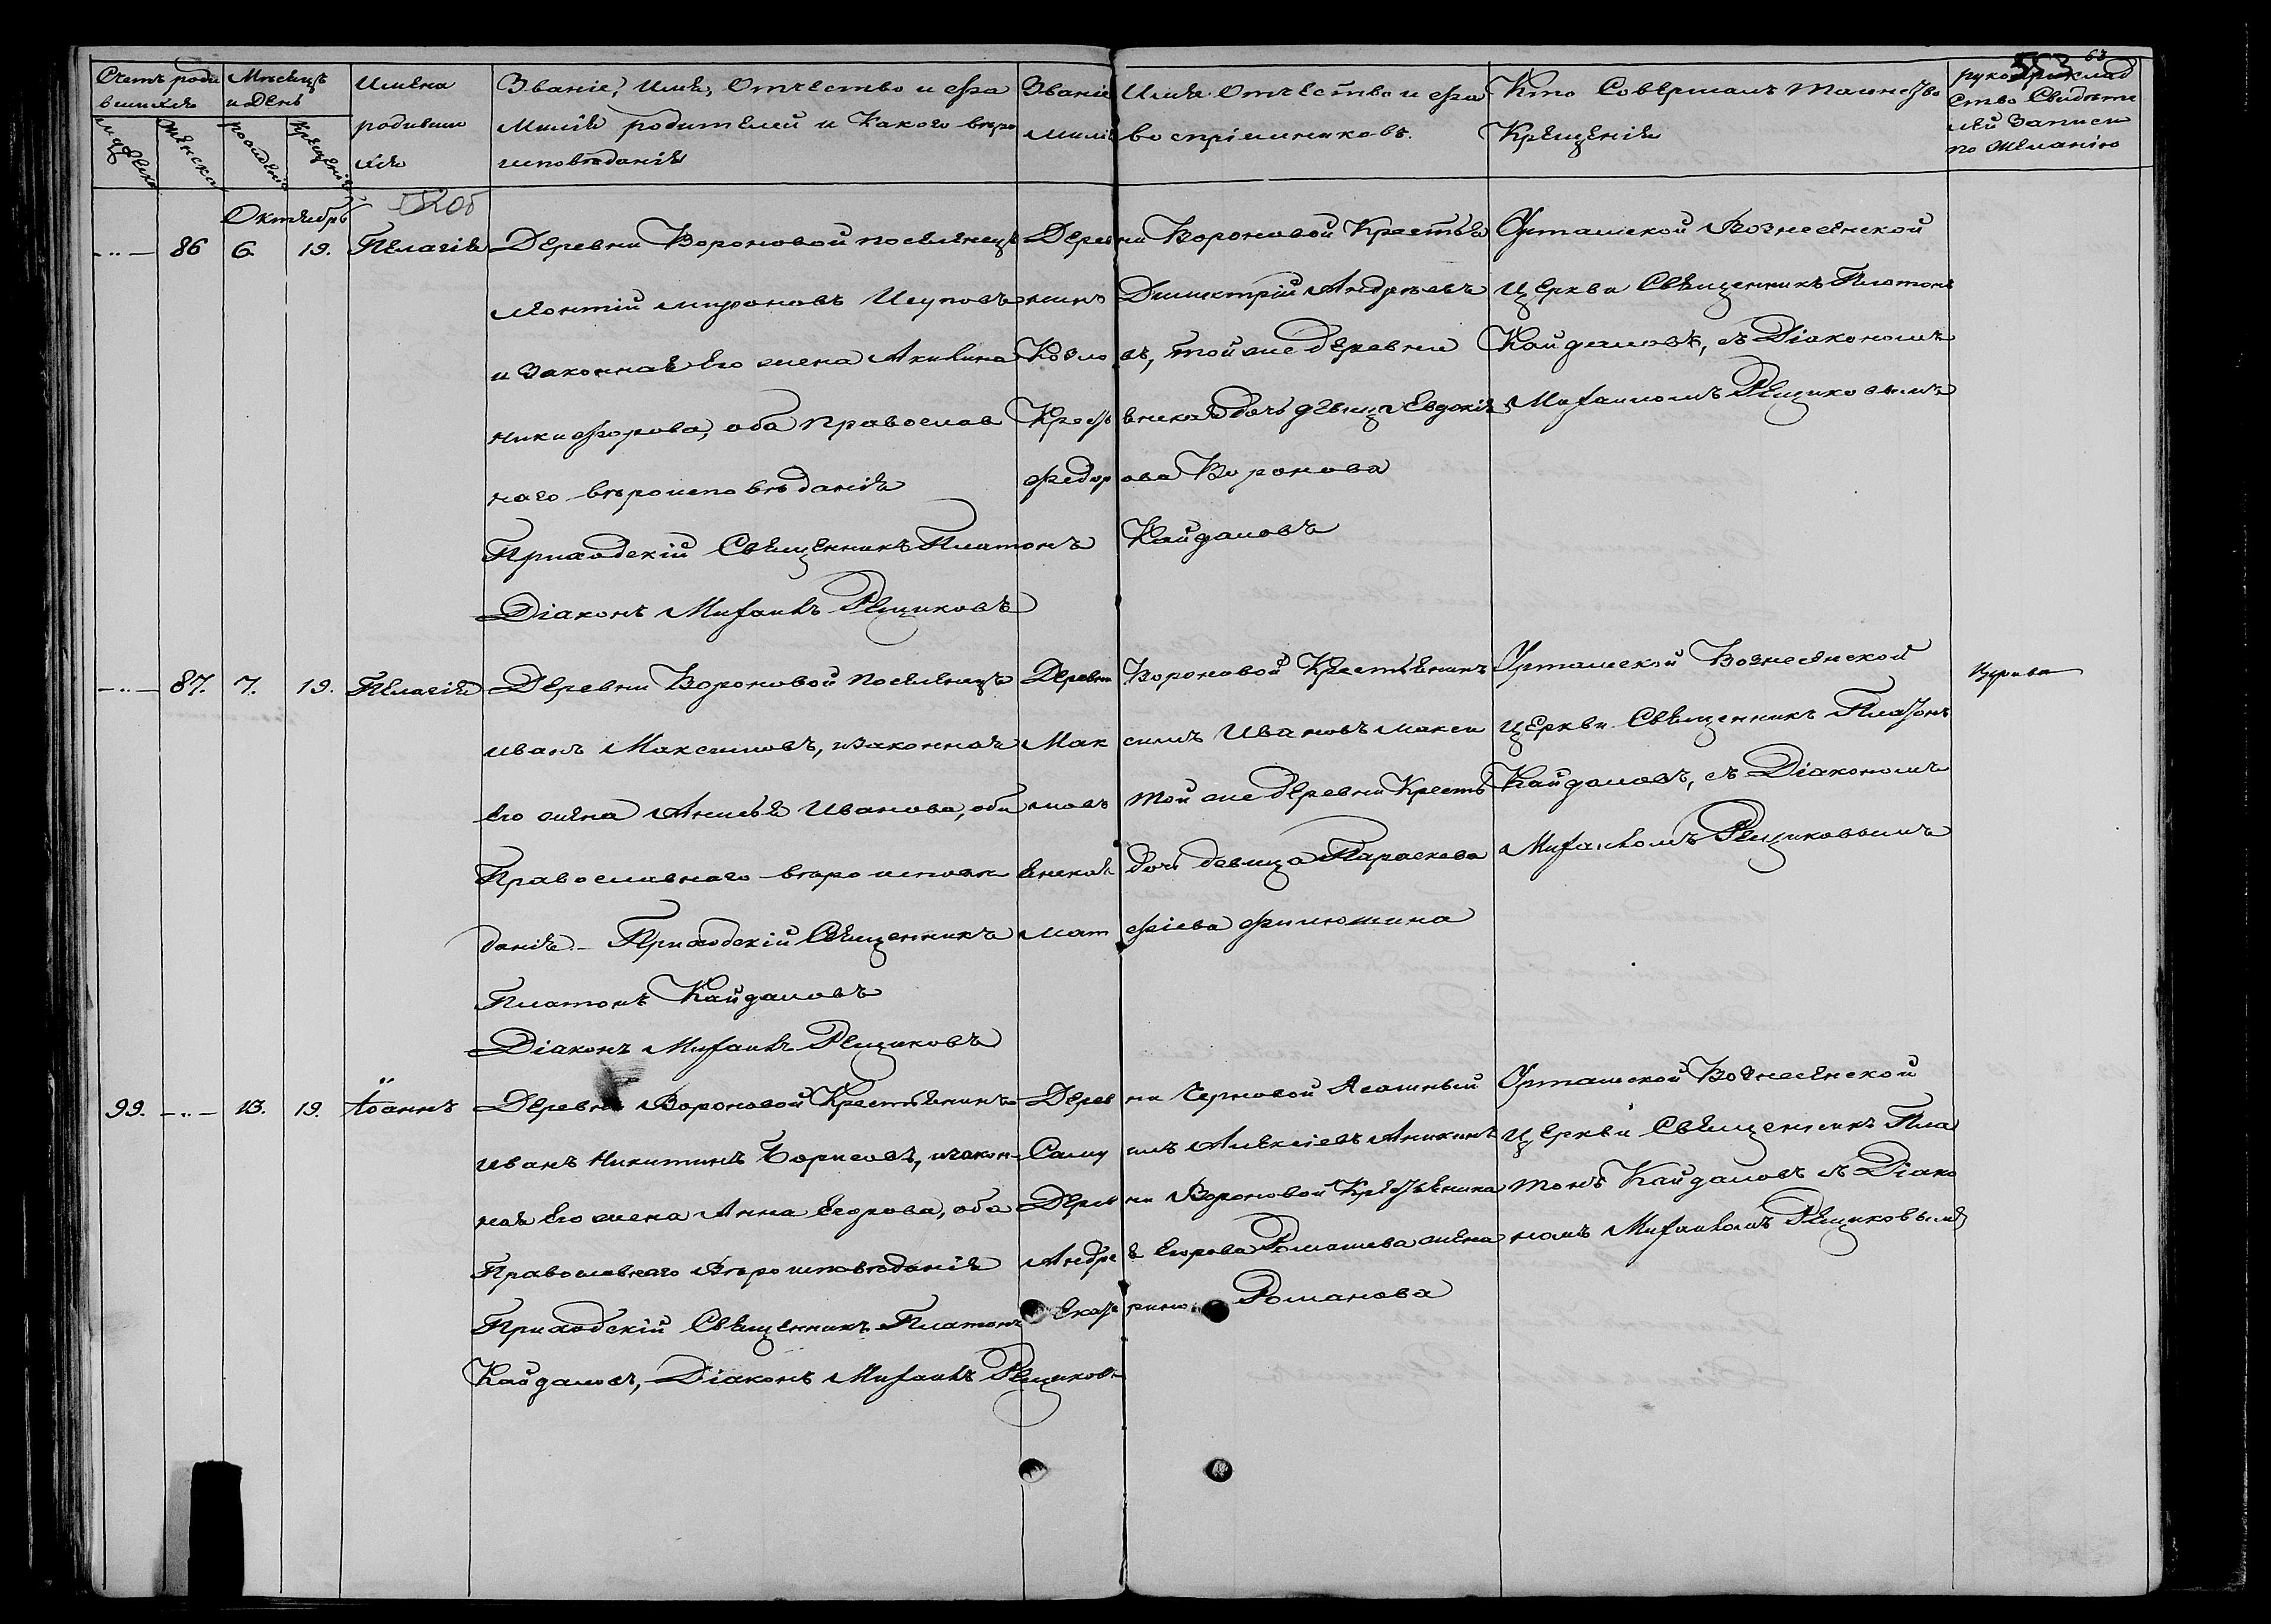 553 63
Счетъ роди
вшихся
Мѣсяцъ
и день
мужеска
женска
рожденія
крещенія
Имена
родивши
хся
Званіе, Имя, Отчество и фа
милія родителей и какого вѣро
исповѣданія
Званіе Имя Отчество и фа
милія воспріемниковъ.
Кто совершалъ таинство
крещенія
рукоприклад
ство свидѣте
лей записи
по желанію
Октябрь
-..- 86 6 19. Пелагія
Деревни Вороновой поселенецъ
леонтій мироновъ
и законная его жена Акилина
никифорова, оба православ
наго вѣроисповѣданія
Приходскій Священникъ Платонъ Кайдаловъ
Діаконъ Михаилъ Рещиковъ
Деревни Вороновой Крестья
нинъ Димитрій Андреевъ
Козловъ, той же деревни
Крестьенская дочь девица Евдокія
федорова Воронова
Уртамской Вознесенской
Церкви Священникъ Платонъ
Кайдаловъ, съ Діакономъ
Михаиломъ Рещиковымъ
-..- 87. 7. 19. Пелагія
Деревни Вороновой поселенецъ
иванъ Максимовъ, изаконная
его жена Анисья Иванова, оба
Православнаго вѣроисповѣ
данія - Приходскій Священникъ
Платонъ Кайдаловъ
Діаконъ Михаилъ Рещиковъ
Деревни Вороновой Крестьенинъ
Максимъ Ивановъ макси
мовъ той же деревни Кресть
енская дочь девица Параскева
матфіева филюшина
Уртамской Вознесенской
Церкви Священникъ Платонъ
Кайдаловъ, съ Діакономъ
Михаиломъ Рещиковымъ
99. -..- 13. 19. Іоаннъ
Деревни Вороновой Крестьенинъ
иванъ Никитинъ Борисовъ, изакон
ная его жена Анна Егорова, оба
Православнаго Вѣроисповѣданія
Приходскій Священникъ Платонъ
Кайдаловъ, Діаконъ Михаилъ Рещиковъ
Деревни Черновой Ясашный
Самуилъ Алексіевъ Аникинъ
Деревни Вороновой Крестьенина
Андрея Егорова Ромашева жена
Екатерина Романова
Уртамской Вознесенской
Церкви Священникъ Пла
тонъ Кайдаловъ съ Діако
номъ Михаиломъ Рещиковымъ